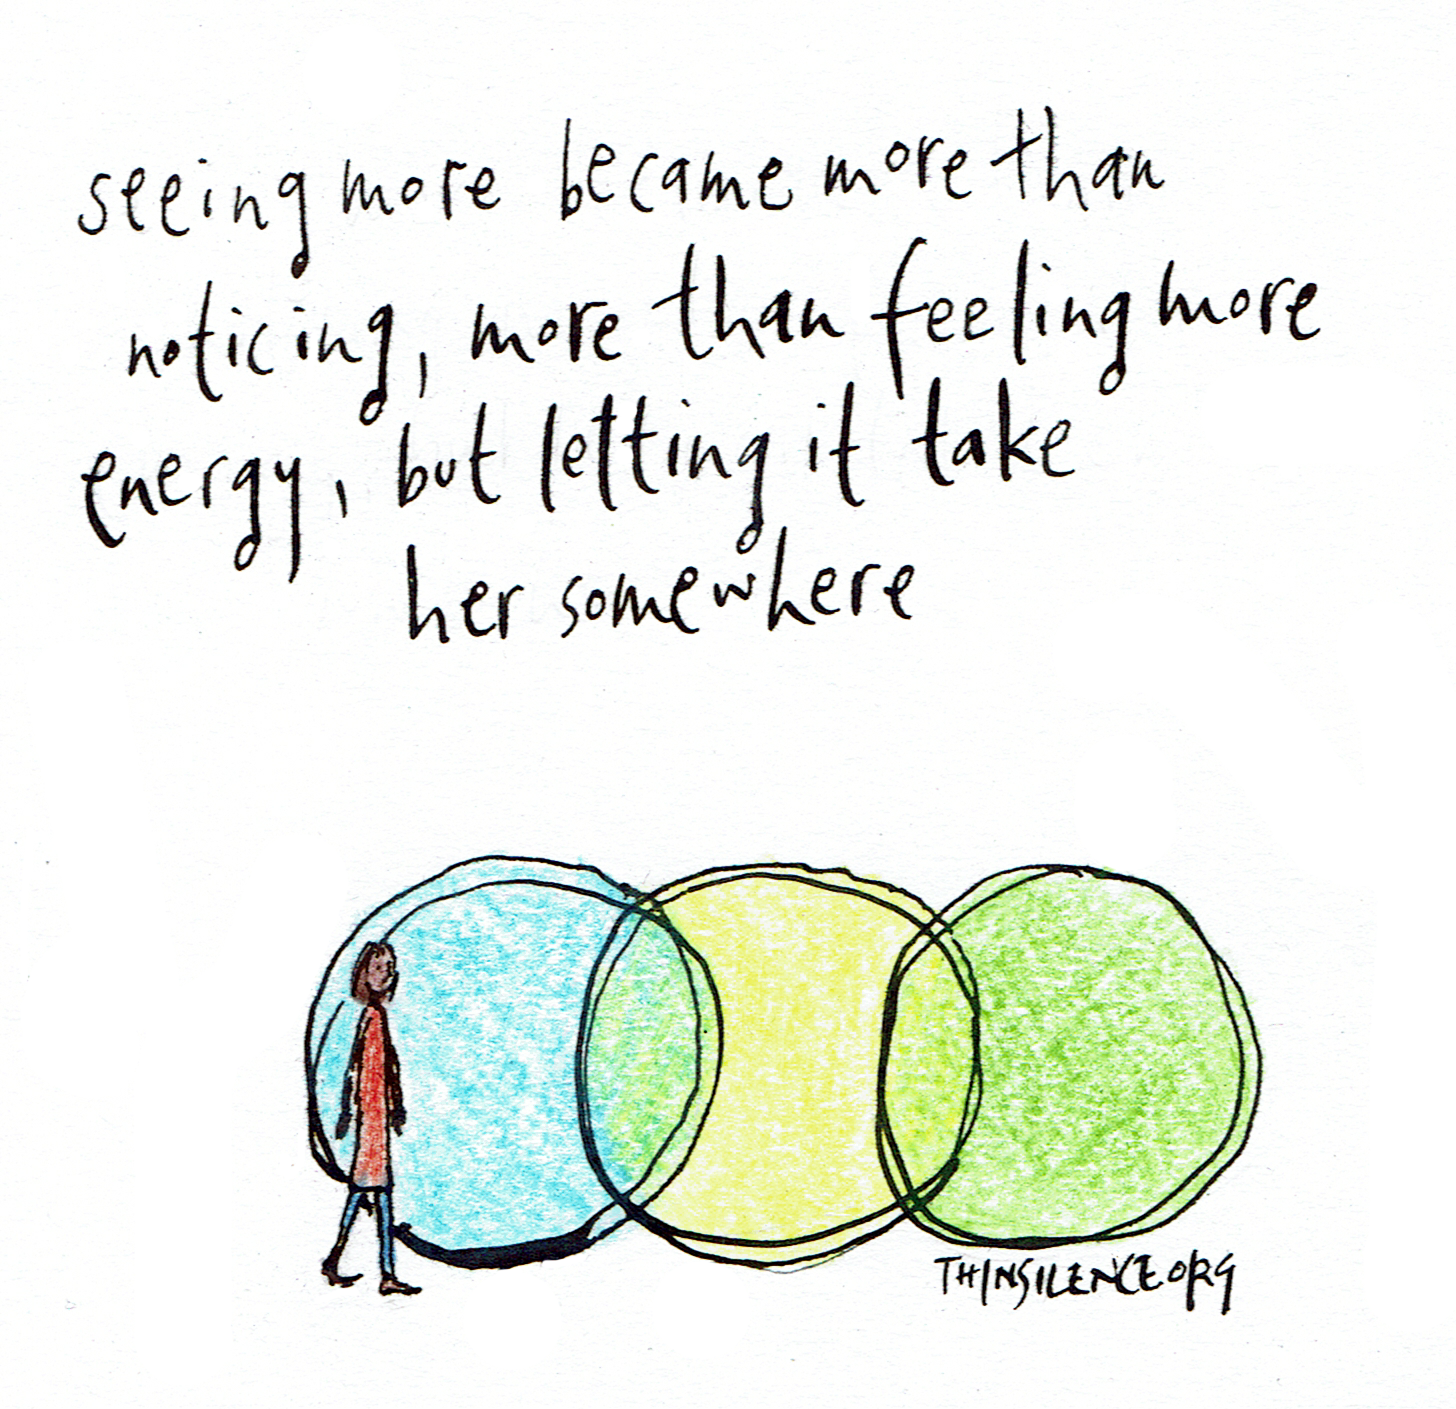 seeing more became more than
noticing, more than feeling more
energy, but letting it take
her somewhere
THINSILENCE ORG